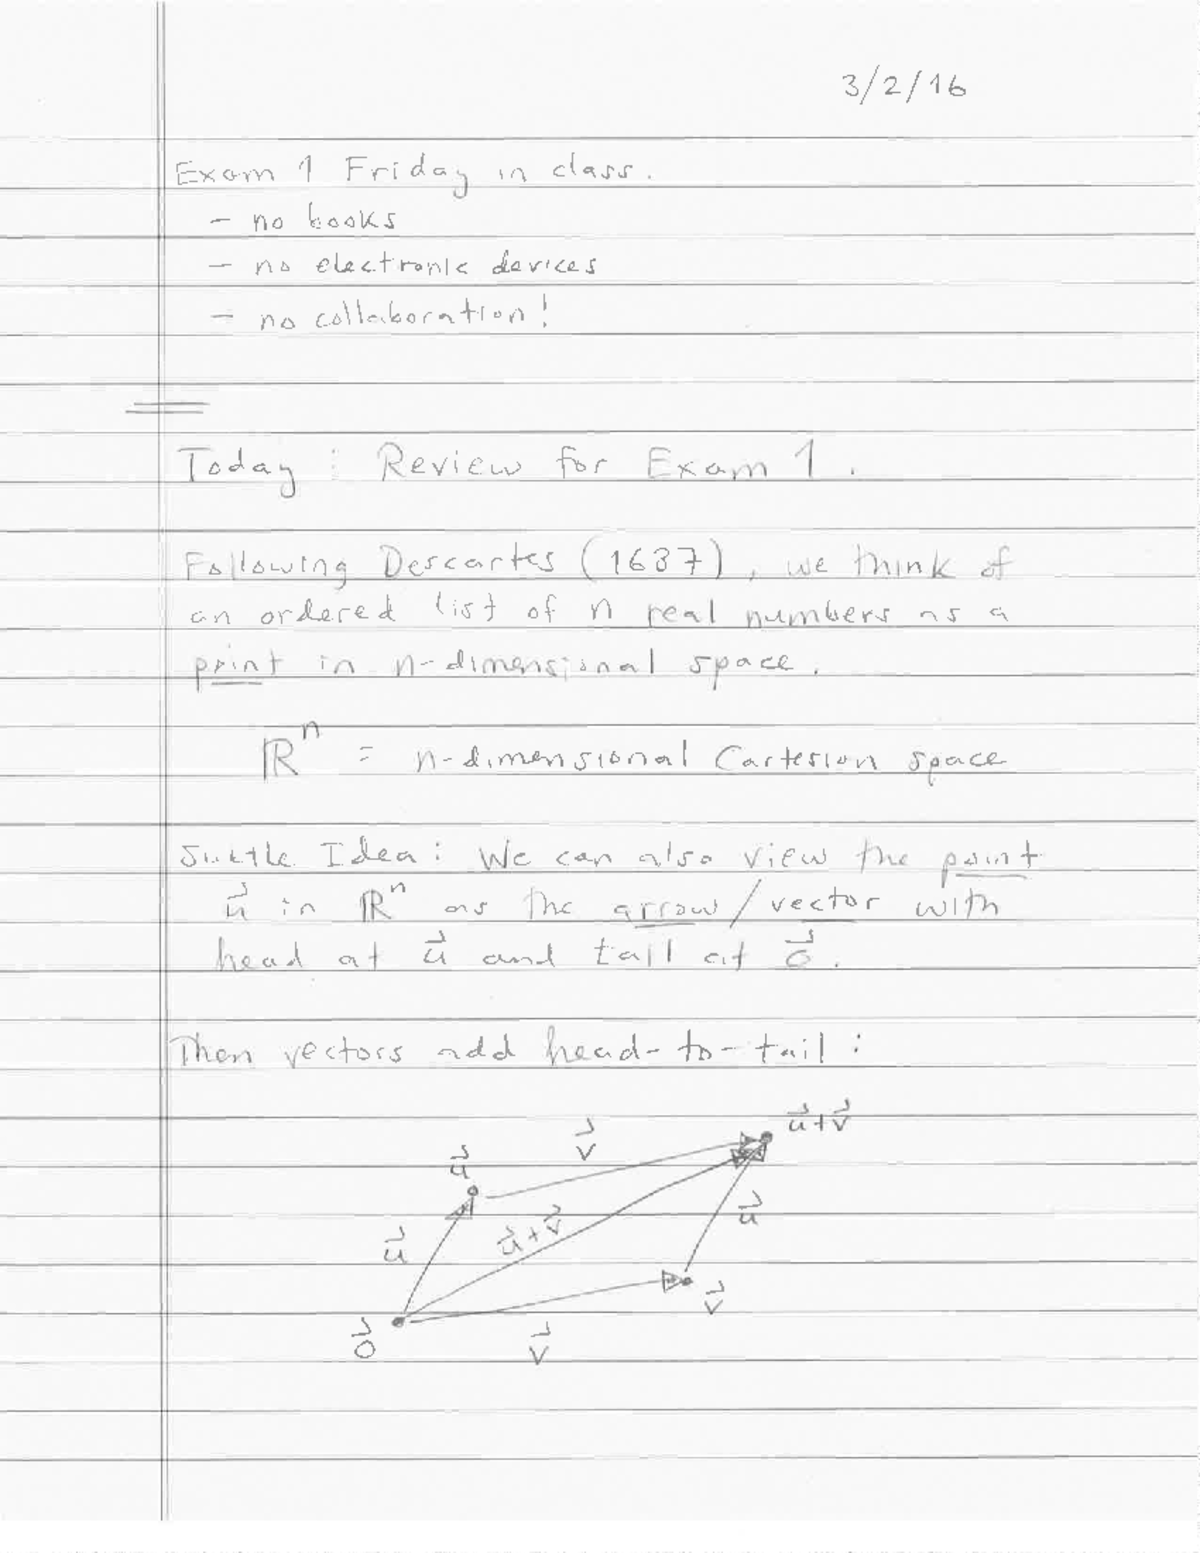 3/2/16
Exam 1 Friday in class.
- no books
- no electronic devices
- no collaboration!
Today: Review for Exam 1.
Following Descartes (1637), we think of
an ordered list of n real numbers as a
point in n-dimensional space.
ℝⁿ = n-dimensional Cartesian space
Subtle Idea: We can also view the point
u⃗ in ℝⁿ as the arrow/vector with
head at u⃗ and tail at 0⃗.
Then vectors add head-to-tail:
u⃗+v⃗
v⃗
u⃗
u⃗
u⃗+v⃗
u⃗
v⃗
0⃗
v⃗